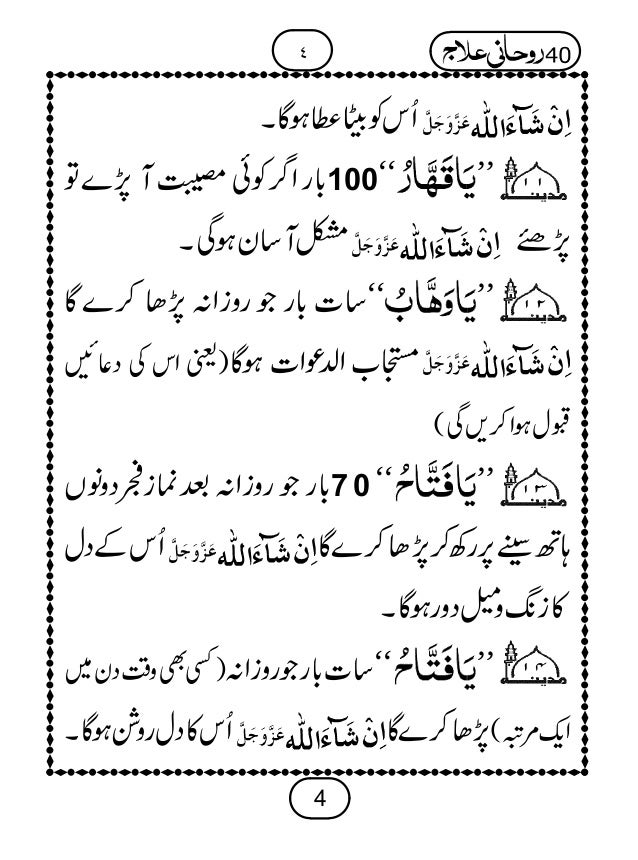 40 روحانی علاج
٤
اِنْ شَآءَاللّٰه عَزَّوَجَلَّ اُس کو بیٹا عطا ہوگا۔
مدینہ ۱۱ ’’یَاقَھَّارُ‘‘ 100 بار اگر کوئی مصیبت آ پڑے تو
پڑھئے اِنْ شَآءَاللّٰه عَزَّوَجَلَّ مشکل آسان ہوگی۔
مدینہ ۱۲ ’’یَاوَھَّابُ‘‘ سات بار جو روزانہ پڑھا کرے گا
اِنْ شَآءَاللّٰه عَزَّوَجَلَّ مستجاب الدعوات ہوگا (یعنی اس کی دعائیں
قبول ہوا کریں گی)
مدینہ ۱۳ ’’یَافَتَّاحُ‘‘ 70 بار جو روزانہ بعد نماز فجر دونوں
ہاتھ سینے پر رکھ کر پڑھا کرے گا اِنْ شَآءَاللّٰه عَزَّوَجَلَّ اُس کے دل
کا زنگ و میل دور ہوگا۔
مدینہ ۱۴ ’’یَافَتَّاحُ‘‘ سات بار جو روزانہ (کسی بھی وقت دن میں
ایک مرتبہ) پڑھا کرے گا اِنْ شَآءَاللّٰه عَزَّوَجَلَّ اُس کا دل روشن ہوگا۔
4